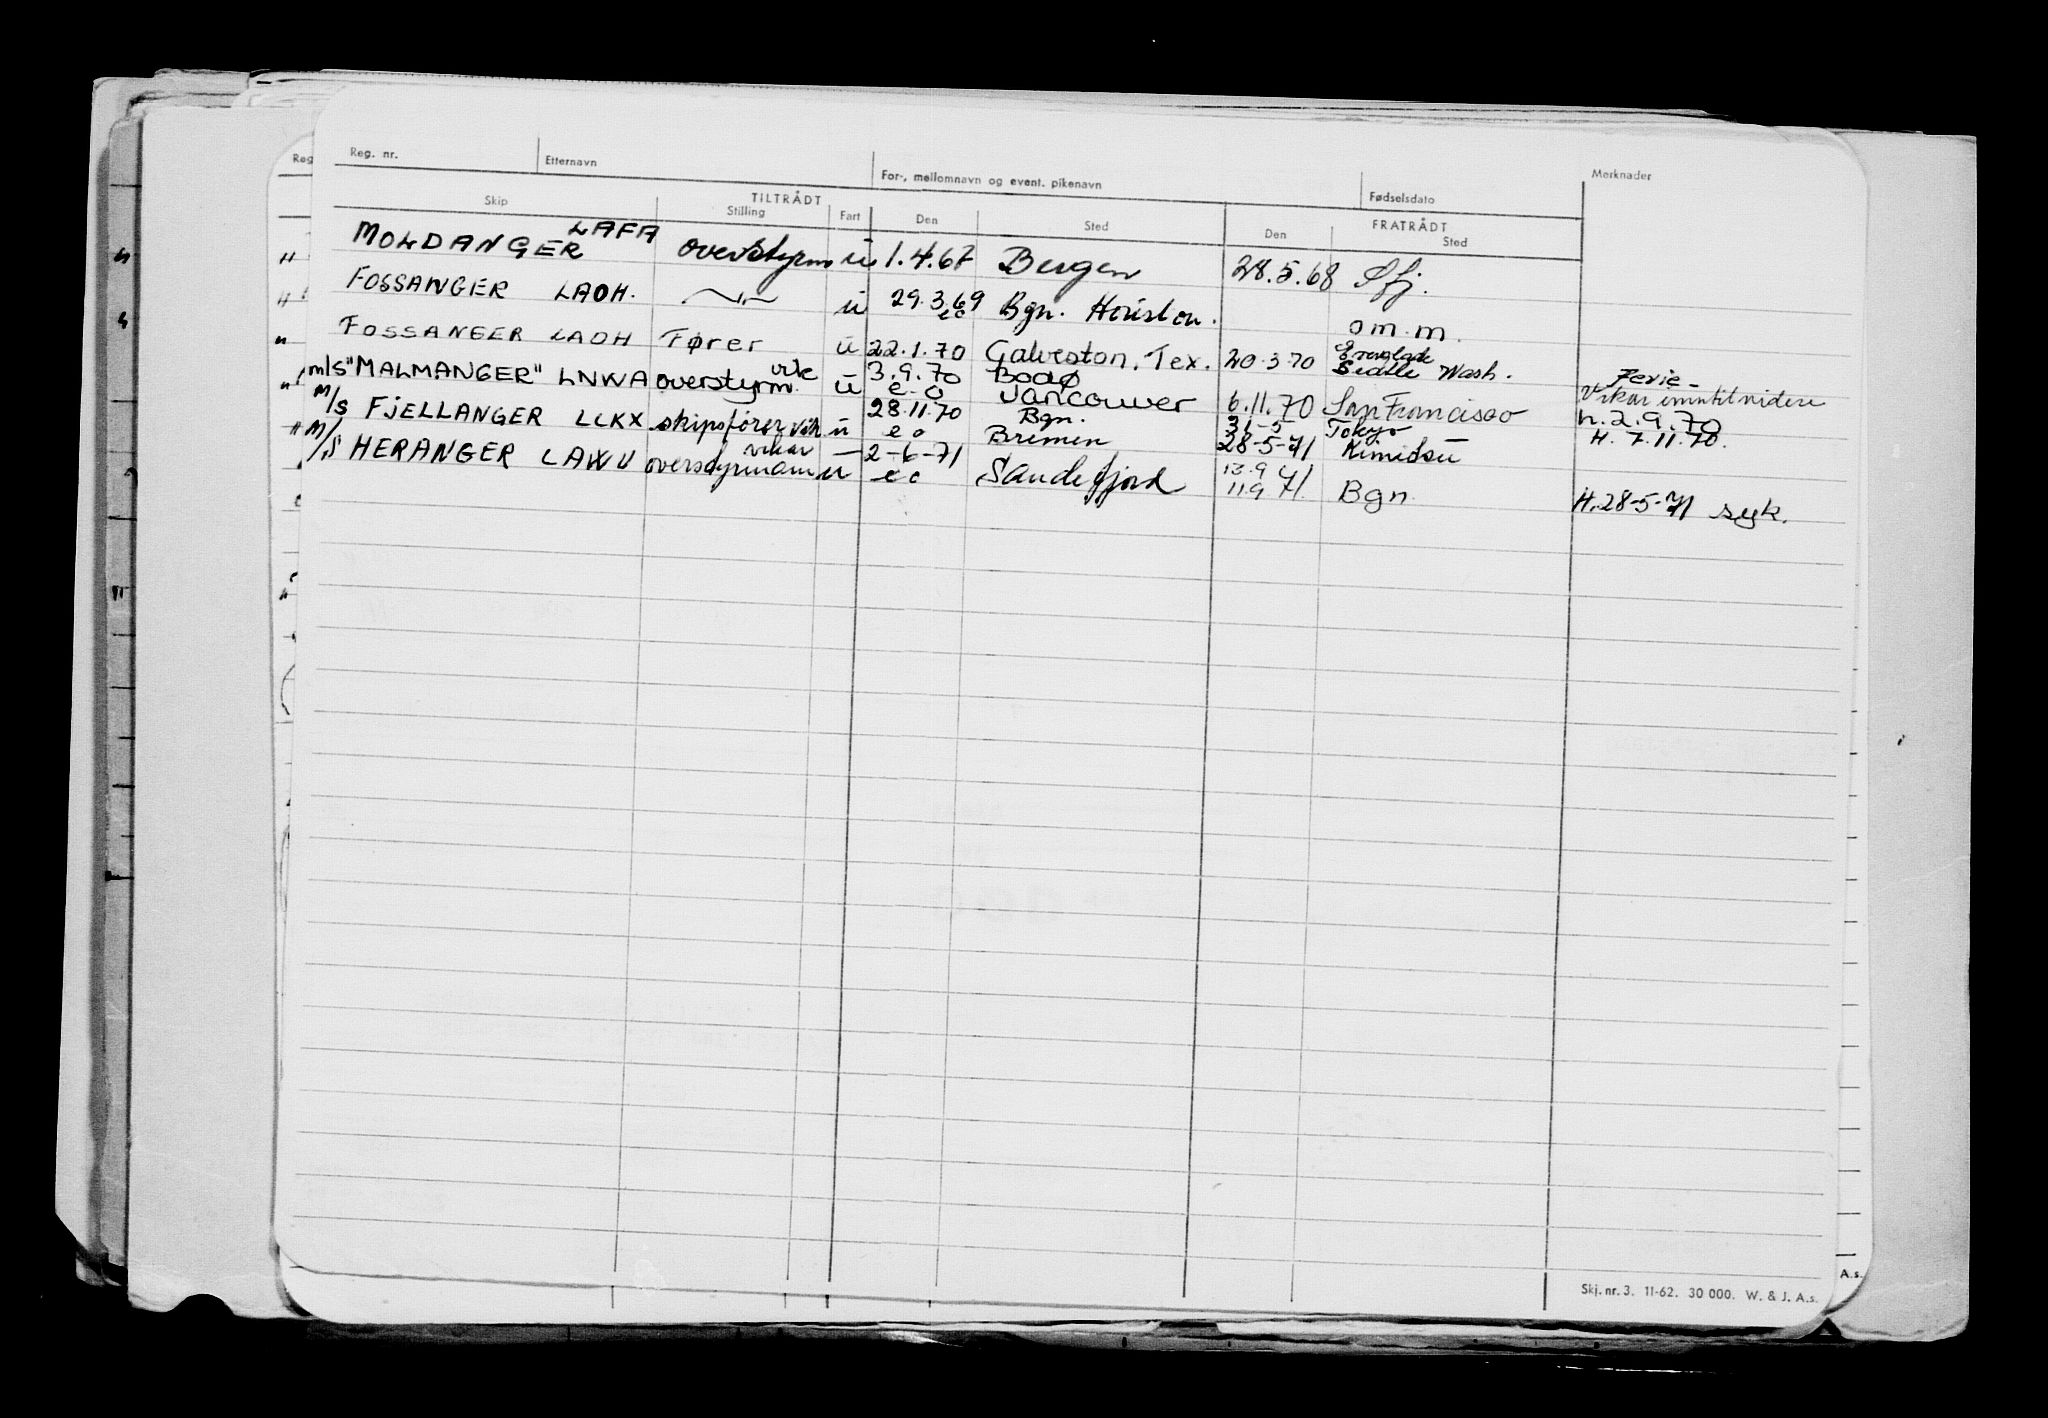 Reg. nr. Etternavn For-, mellomnavn og event. pikenavn Fødselsdato Merknader
TILTRÅDT FRATRÅDT
Skip Stilling Fart Den Sted Den Sted
MOLDANGER LAFA overstyrm u 1.4.67 Bergen 28.5.68 Sfj.
FOSSANGER LAOH. —"— u 29.3.69 eo Bgn. Houston. om.m.
FOSSANGER LAOH Fører u 22.1.70 Galveston, Tex. 20.3.70 Everglade Seattle Wash.
m/s "MALMANGER" LNWA overstyrm. vik u 3.9.70 e.o Bodø Vancouver 6.11.70 San Francisco Ferie - Vikar inntil videre h. 2.9.70
M/S FJELLANGER LCKX skipsfører vik u 28.11.70 eo Bgn. Bremen 31-5 28-5-71 Tokyo Kimidsu H. 7.11.70.
M/S HERANGER LAWU overstyrmann vikar u 2-6-71 eo Sandefjord 13.9 11.9 71. Bgn H. 28-5-71 syk.
Skj. nr. 3. 11-62. 30 000. W. & J. A.s.